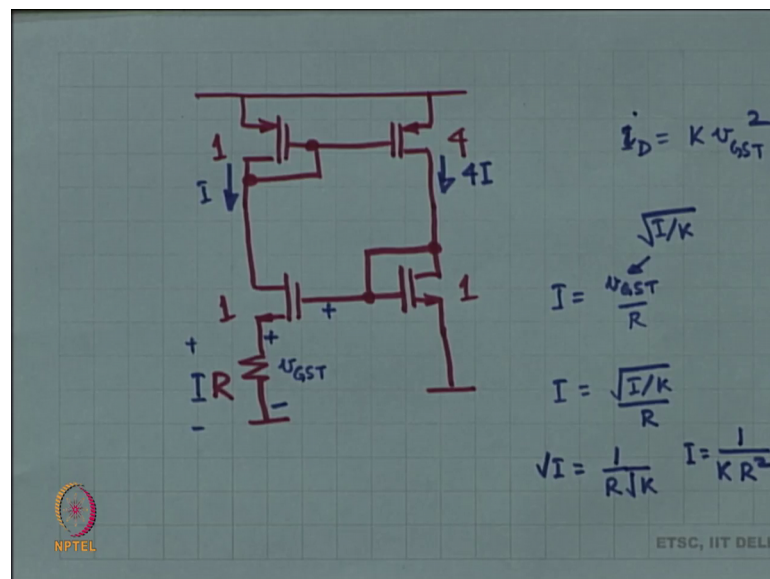 1
4
I
4I
1
1
+
+
+
I R
-
v_GST
-
i_D = K v_GST^2
√I/K
I = v_GST / R
I = √I/K / R
√I = 1 / R√K   I = 1 / K R^2
NPTEL
ETSC, IIT DEL